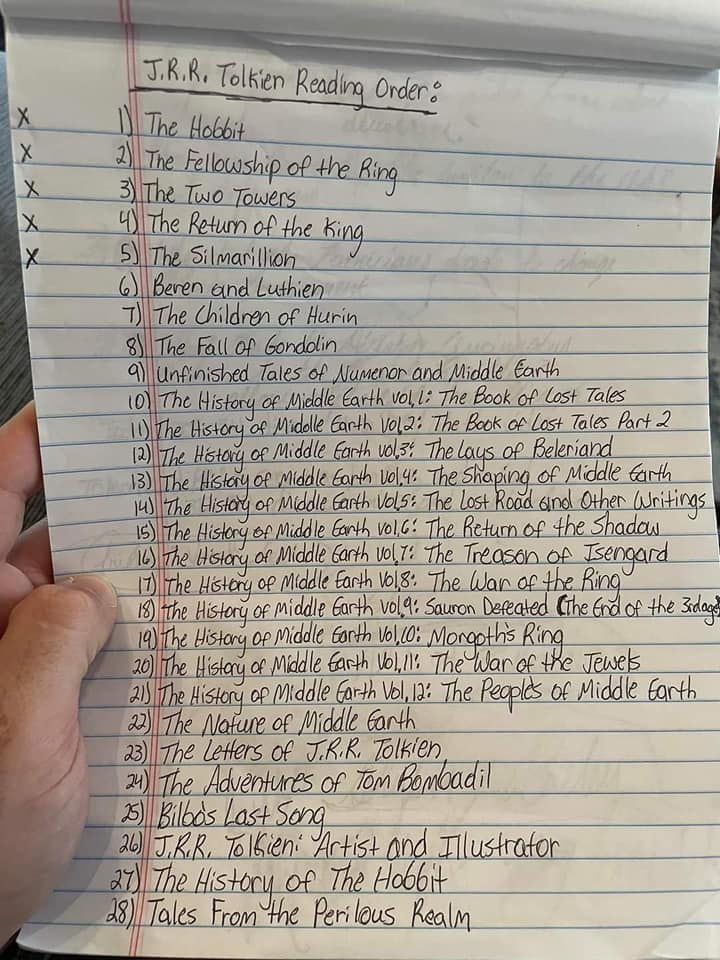 J.R.R. Tolkien Reading Order:
X 1) The Hobbit
X 2) The Fellowship of the Ring
X 3) The Two Towers
X 4) The Return of the King
X 5) The Silmarillion
6) Beren and Luthien
7) The Children of Hurin
8) The Fall of Gondolin
9) Unfinished Tales of Numenor and Middle Earth
10) The History of Middle Earth vol,1: The Book of Lost Tales
11) The History of Middle Earth Vol,2: The Book of Lost Tales Part 2
12) The History of Middle Earth vol,3: The Lays of Beleriand
13) The History of Middle Earth Vol,4: The Shaping of Middle Earth
14) The History of Middle Earth Vol,5: The Lost Road and Other Writings
15) The History of Middle Earth vol,6: The Return of the Shadow
16) The History of Middle Earth vol,7: The Treason of Isengard
17) The History of Middle Earth Vol,8: The War of the Ring
18) The History of Middle Earth vol,9: Sauron Defeated (The End of the 3rd age)
19) The History of Middle Earth Vol,10: Morgoth's Ring
20) The History of Middle Earth Vol,11: The War of the Jewels
21) The History of Middle Earth Vol,12: The People's of Middle Earth
22) The Nature of Middle Earth
23) The Letters of J.R.R. Tolkien
24) The Adventures of Tom Bombadil
25) Bilbo's Last Song
26) J.R.R. Tolkien: Artist and Illustrator
27) The History of The Hobbit
28) Tales From the Perilous Realm